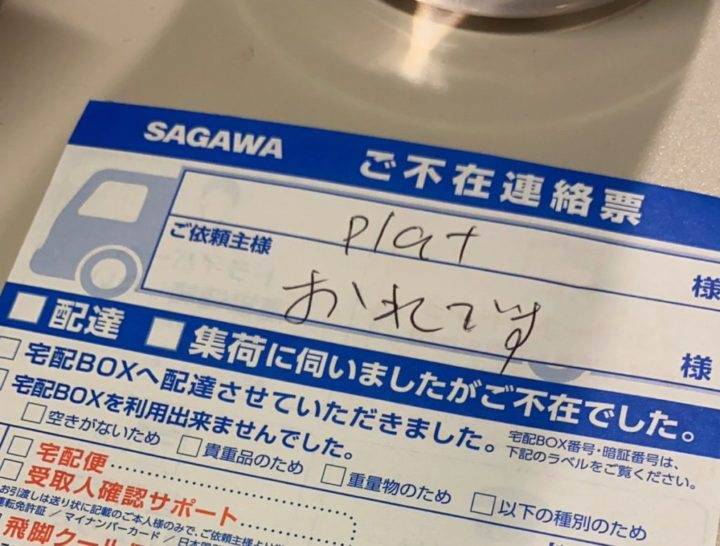 SAGAWA ご不在連絡票
plat 様
ご依頼主様
おれです 様
■配達 ■集荷に伺いましたがご不在でした。
□宅配BOXへ配達させていただきました。
□宅配BOXを利用出来ませんでした。
宅配BOX番号・暗証番号は、
下記のラベルをご覧ください。
□空きがないため □貴重品のため □重量物のため □以下の種別のため
□宅配便
□受取人確認サポート
お引渡しは送り状に記載のご本人様のみで、ご依頼主様より
運転免許証 / マイナンバーカード / 日本国
飛脚クール